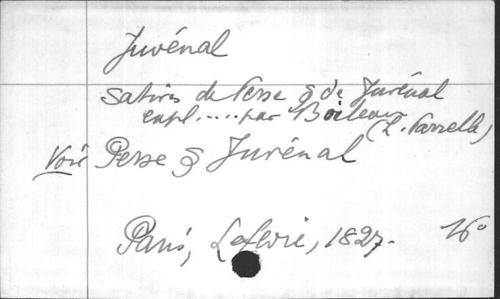 Juvénal
Satires de Perse & de Juvénal
expl.....par Boileau
(F. Parrelle)
Voir Perse & Juvénal
Paris, Lefèvre, 1827. 16°